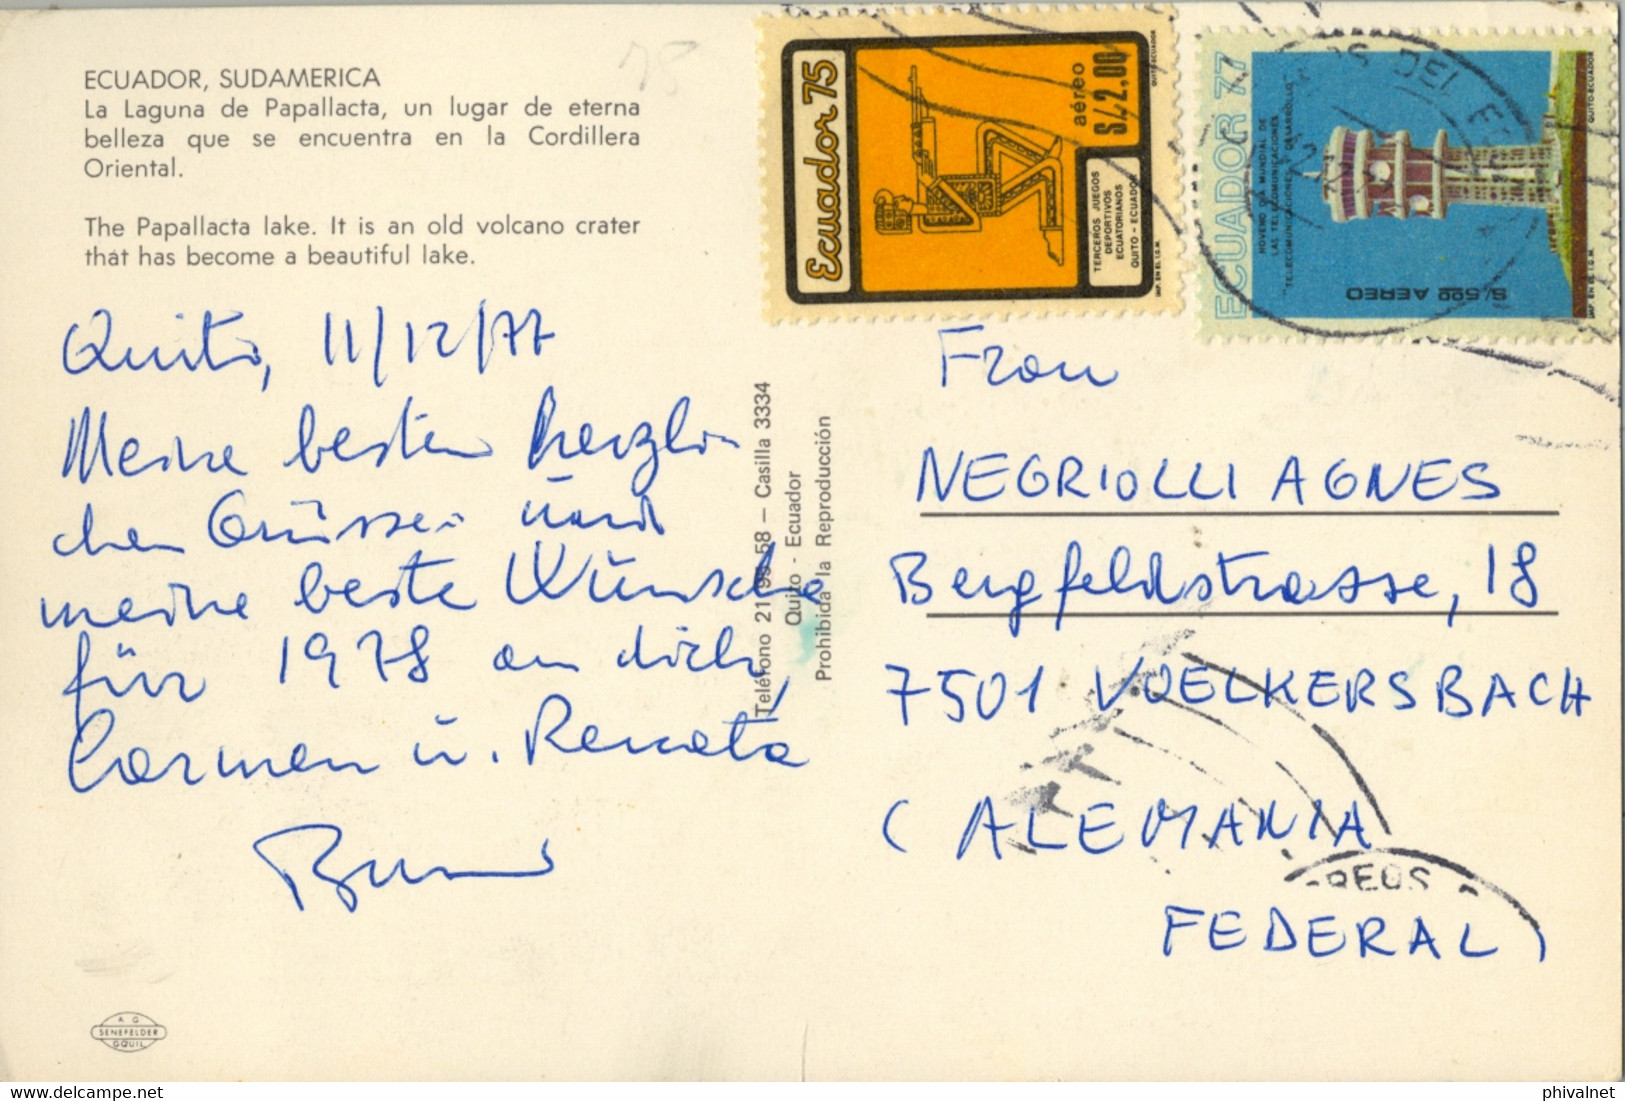 ECUADOR, SUDAMERICA
La Laguna de Papallacta, un lugar de eterna
belleza que se encuentra en la Cordillera
Oriental.
The Papallacta lake. It is an old volcano crater
that has become a beautiful lake.
Quito, 11/12/77
Meine besten herzli
chen Grüsse und
meine beste Wünsche
für 1978 an dich,
Carmen u. Renata
A. G.
SENEFELDER
GQUIL.
Teléfono 21 99 58 – Casilla 3334
Quito - Ecuador
Prohibida la Reproducción
Ecuador 75
aéreo
S/. 2,00
TERCEROS JUEGOS
DEPORTIVOS
ECUATORIANOS
QUITO - ECUADOR
IMP. EN EL I.G.M.
QUITO-ECUADOR
ECUADOR 77
NOVENO DIA MUNDIAL DE
LAS TELECOMUNICACIONES
"TELECOMUNICACIONES Y DESARROLLO"
S/. 5,00 AEREO
IMP. EN EL I.G.M.
QUITO-ECUADOR
OS DEL E
Frau
NEGRIOLLI AGNES
Bergfeldstrasse, 18
7501 VOELKERSBACH
(ALEMANIA
FEDERAL)
REOS
phivalnet